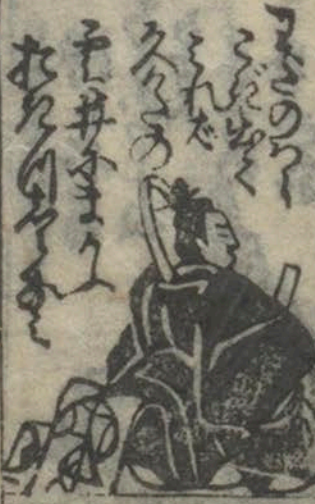 わたのはら
こぎ出て
みれば
久かたの
雲井にまかふ
おきつしらなみ